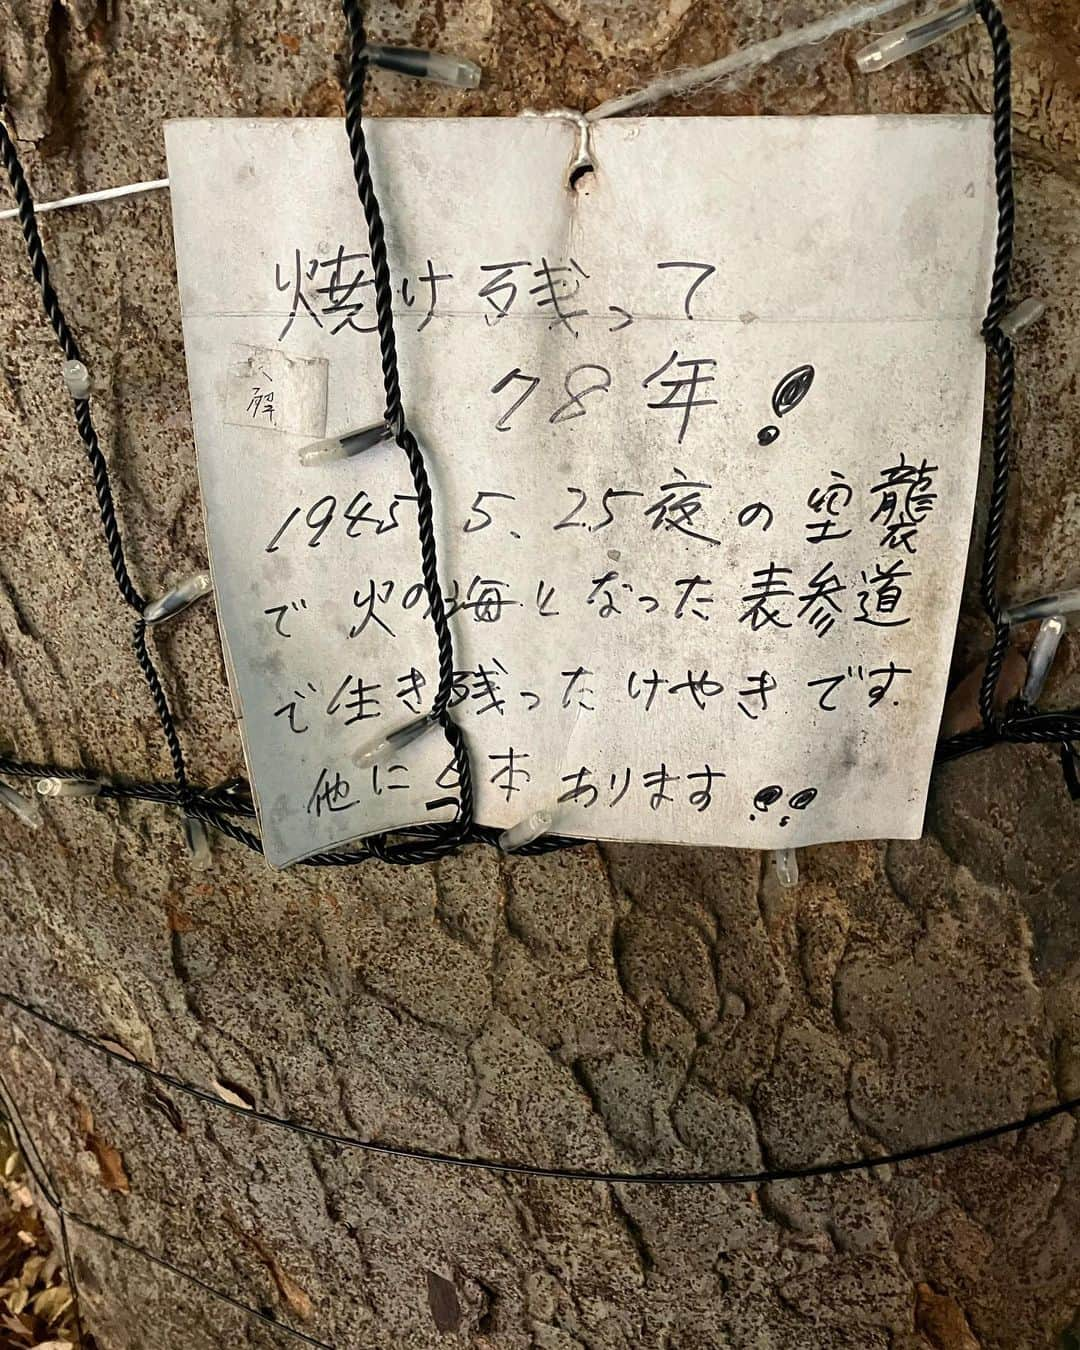 焼け残って
78年!
解
1945 5. 25夜の空襲
で火の海となった表参道
で生き残ったけやきです.
他に 本 あります!!